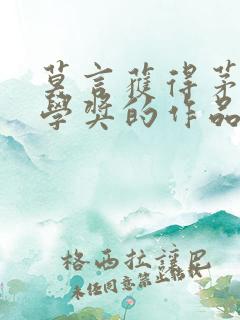 莫言獲得茅
學獎的作品
格西拉讓尼
未经同意禁止转载